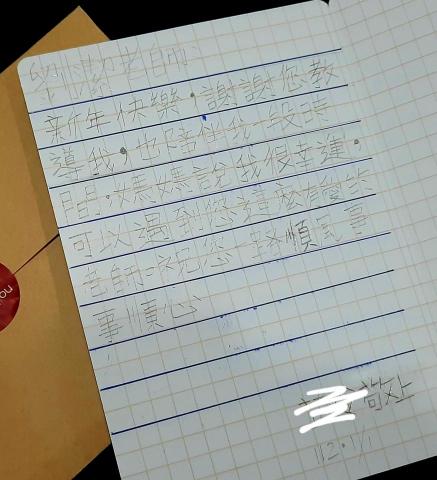 老師:
新年快樂,謝謝您教
導我,也陪伴我一段時
間,媽媽說我很幸運,
可以遇到您這麼有愛的
老師,祝您一路順風 事
事順心
敬上
112.1.1
you